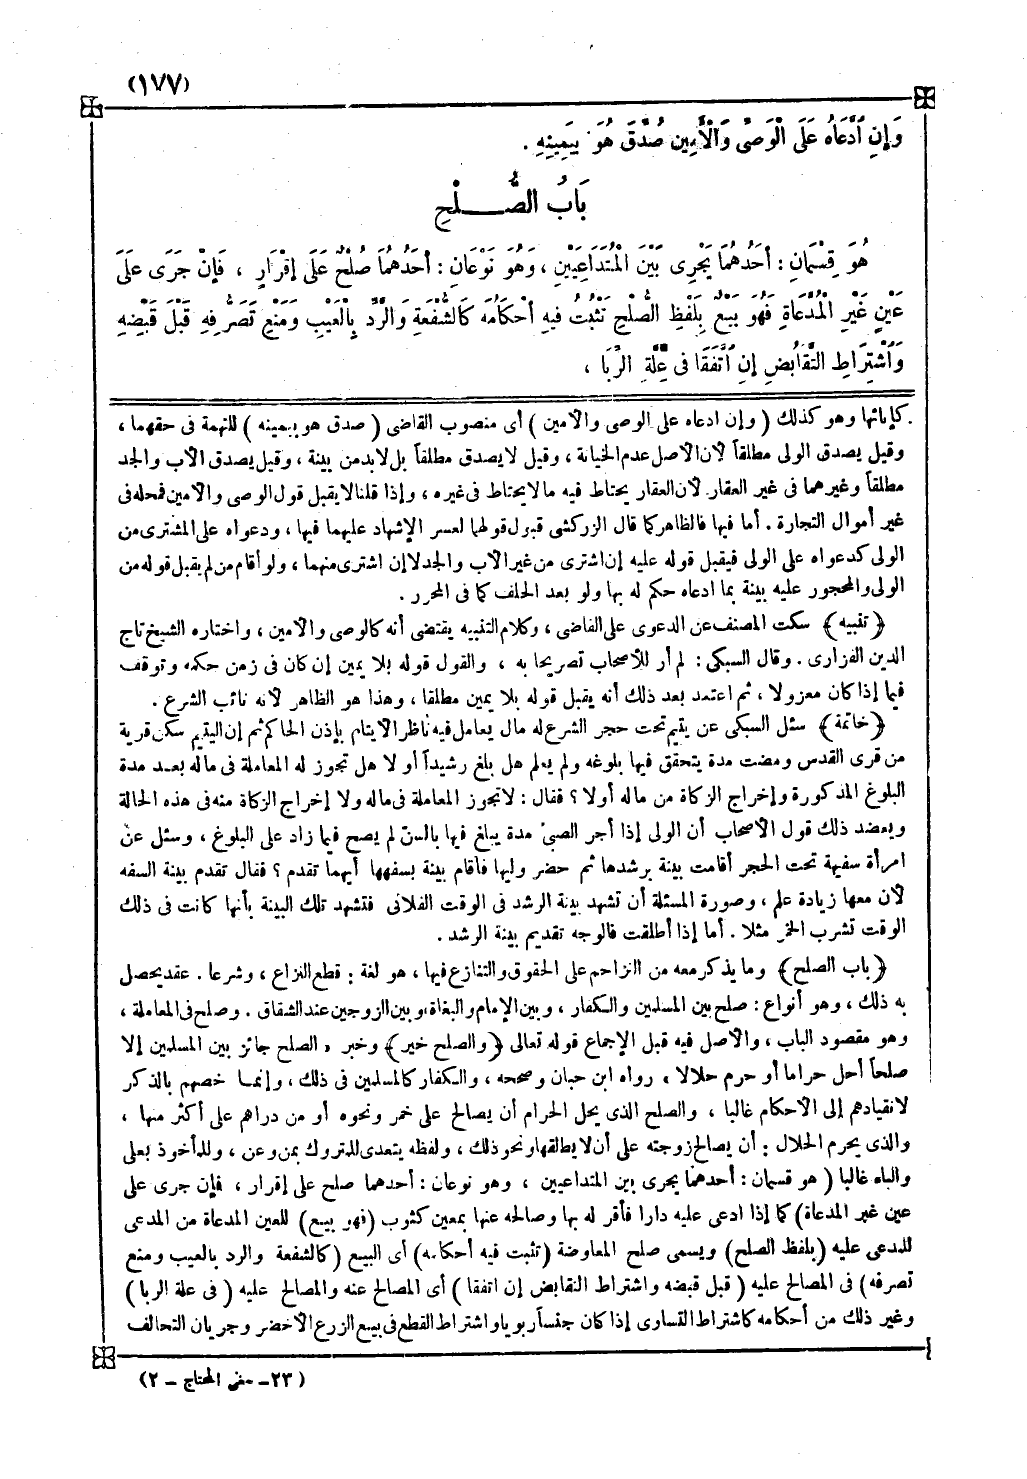 (١٧٧)
وَإِنِ ادَّعَاهُ عَلَى الْوَصِيِّ وَالْأَمِينِ صُدِّقَ هُوَ بِيَمِينِهِ .
بَابُ الصُّلْحِ
هُوَ قِسْمَانِ : أَحَدُهُمَا يَجْرِى بَيْنَ الْمُتَدَاعِيَيْنِ ، وَهُوَ نَوْعَانِ : أَحَدُهُمَا صُلْحٌ عَلَى إِقْرَارٍ ، فَإِنْ جَرَى عَلَى
عَيْنٍ غَيْرِ الْمُدَّعَاةِ فَهُوَ بَيْعٌ بِلَفْظِ الصُّلْحِ تَثْبُتُ فِيهِ أَحْكَامُهُ كَالشُّفْعَةِ وَالرَّدِّ بِالْعَيْبِ وَمَنْعِ تَصَرُّفِهِ قَبْلَ قَبْضِهِ
وَاشْتِرَاطِ التَّقَابُضِ إِنِ اتَّفَقَا فِى عِلَّةِ الرِّبَا ،
كإبائها وهو كذلك ( وإن ادعاه على الوصى والأمين ) أى منصوب القاضى ( صدق هو بيمينه ) للتهمة فى حقهما ،
وقيل يصدق الولى مطلقاً لأن الأصل عدم الخيانة ، وقيل لا يصدق مطلقاً بل لابد من بينة ، وقيل يصدق الأب والجد
مطلقاً وغيرهما فى غير العقار لأن العقار يحتاط فيه ما لا يحتاط فى غيره ، وإذا قلنا لا يقبل قول الوصى والأمين فمحله فى
غير أموال التجارة . أما فيها فالظاهر كما قال الزركشى قبول قولهما لعسر الإشهاد عليهما فيها ، ودعواه على المشترى من
الولى كدعواه على الولى فيقبل قوله عليه إن اشترى من غير الأب والجد لا إن اشترى منهما ، ولو أقام من لم يقبل قوله من
الولى والمحجور عليه بينة بما ادعاه حكم له بها ولو بعد الحلف كما فى المحرر .
﴿ تنبيه ﴾ سكت المصنف عن الدعوى على القاضى ، وكلام التنبيه يقتضى أنه كالوصى والأمين ، واختاره الشيخ تاج
الدين الفزارى . وقال السبكى : لم أر للأصحاب تصريحا به ، والقول قوله بلا يمين إن كان فى زمن حكمه وتوقف
فيما إذا كان معزولا ، ثم اعتمد بعد ذلك أنه يقبل قوله بلا يمين مطلقا ، وهذا هو الظاهر لأنه نائب الشرع .
﴿ خاتمة ﴾ سئل السبكى عن يتيم تحت حجر الشرع له مال يعامل فيه ناظر الأيتام بإذن الحاكم ثم إن اليتيم سكن قرية
من قرى القدس ومضت مدة يتحقق فيها بلوغه ولم يعلم هل بلغ رشيداً أو لا هل تجوز له المعاملة فى ماله بعد مدة
البلوغ المذكورة وإخراج الزكاة من ماله أولا ؟ فقال : لا تجوز المعاملة فى ماله ولا إخراج الزكاة منه فى هذه الحالة
ويعضد ذلك قول الأصحاب أن الولى إذا أجر الصبىّ مدة يبلغ فيها بالسنّ لم يصح فيما زاد على البلوغ ، وسئل عن
امرأة سفيهة تحت الحجر أقامت بينة برشدها ثم حضر وليها فأقام بينة بسفهها أيهما تقدم ؟ فقال تقدم بينة السفه
لأن معها زيادة علم ، وصورة المسئلة أن تشهد بينة الرشد فى الوقت الفلانى فتشهد تلك البينة بأنها كانت فى ذلك
الوقت تشرب الخمر مثلا . أما إذا أطلقت فالوجه تقديم بينة الرشد .
﴿ باب الصلح ﴾ وما يذكر معه من التزاحم على الحقوق والتنازع فيها ، هو لغة : قطع النزاع ، وشرعا . عقد يحصل
به ذلك ، وهو أنواع : صلح بين المسلمين والكفار ، وبين الإمام والبغاة ، وبين الزوجين عند الشقاق . وصلح فى المعاملة ،
وهو مقصود الباب ، والأصل فيه قبل الإجماع قوله تعالى ﴿ والصلح خير ﴾ وخبر « الصلح جائز بين المسلمين إلا
صلحاً أحل حراما أو حرم حلالا » رواه ابن حبان وصححه ، والكفار كالمسلمين فى ذلك ، وإنما خصهم بالذكر
لانقيادهم إلى الأحكام غالبا ، والصلح الذى يحل الحرام أن يصالح على خمر ونحوه أو من دراهم على أكثر منها ،
والذى يحرم الحلال : أن يصالح زوجته على أن لا يطالقها ونحو ذلك ، ولفظه يتعدى للمتروك بمن وعن ، وللمأخوذ بعلى
والباء غالبا ( هو قسمان : أحدهما يجرى بين المتداعيين ، وهو نوعان : أحدهما صلح على إقرار ، فإن جرى على
عين غير المدعاة ) كما إذا ادعى عليه دارا فأقر له بها وصالحه عنها بمعين كثوب ( فهو بيع ) للعين المدعاة من المدعى
للمدعى عليه ( بلفظ الصلح ) ويسمى صلح المعاوضة ( تثبت فيه أحكامه ) أى البيع ( كالشفعة والرد بالعيب ومنع
تصرفه ) فى المصالح عليه ( قبل قبضه واشتراط التقابض إن اتفقا ) أى المصالح عنه والمصالح عليه ( فى علة الربا )
وغير ذلك من أحكامه كاشتراط التساوى إذا كان جنساً ربويا واشتراط القطع فى بيع الزرع الأخضر وجريان التحالف
( ٢٣ - مغنى المحتاج - ٢ )